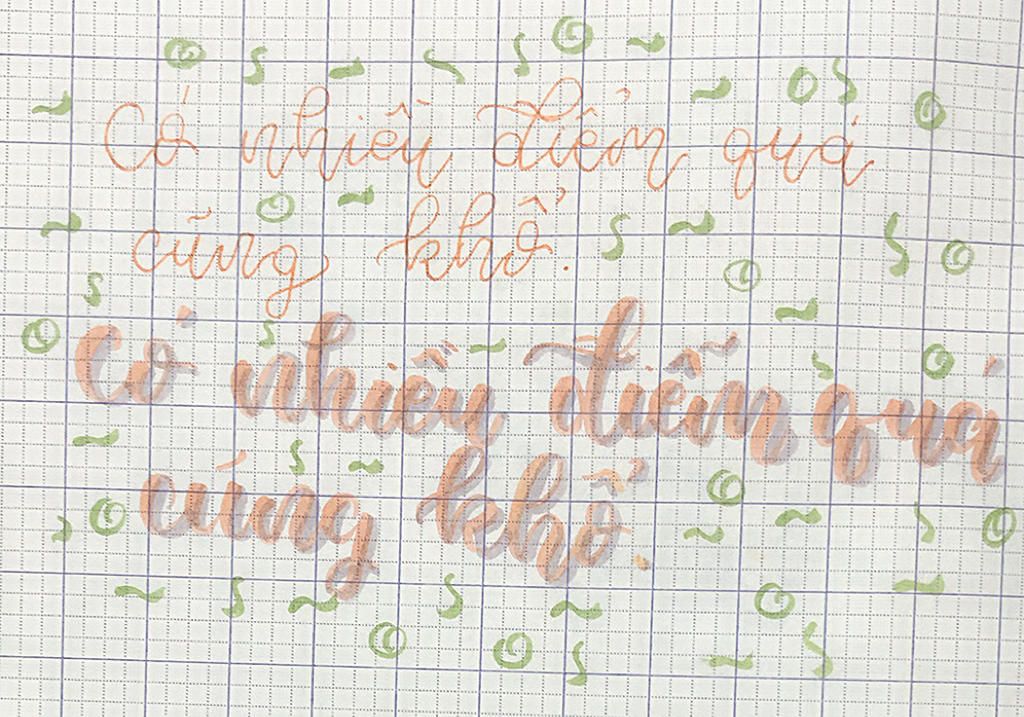 Có nhiều điểm quá
cũng khổ.
Có nhiều điểm quá
cúng khổ.